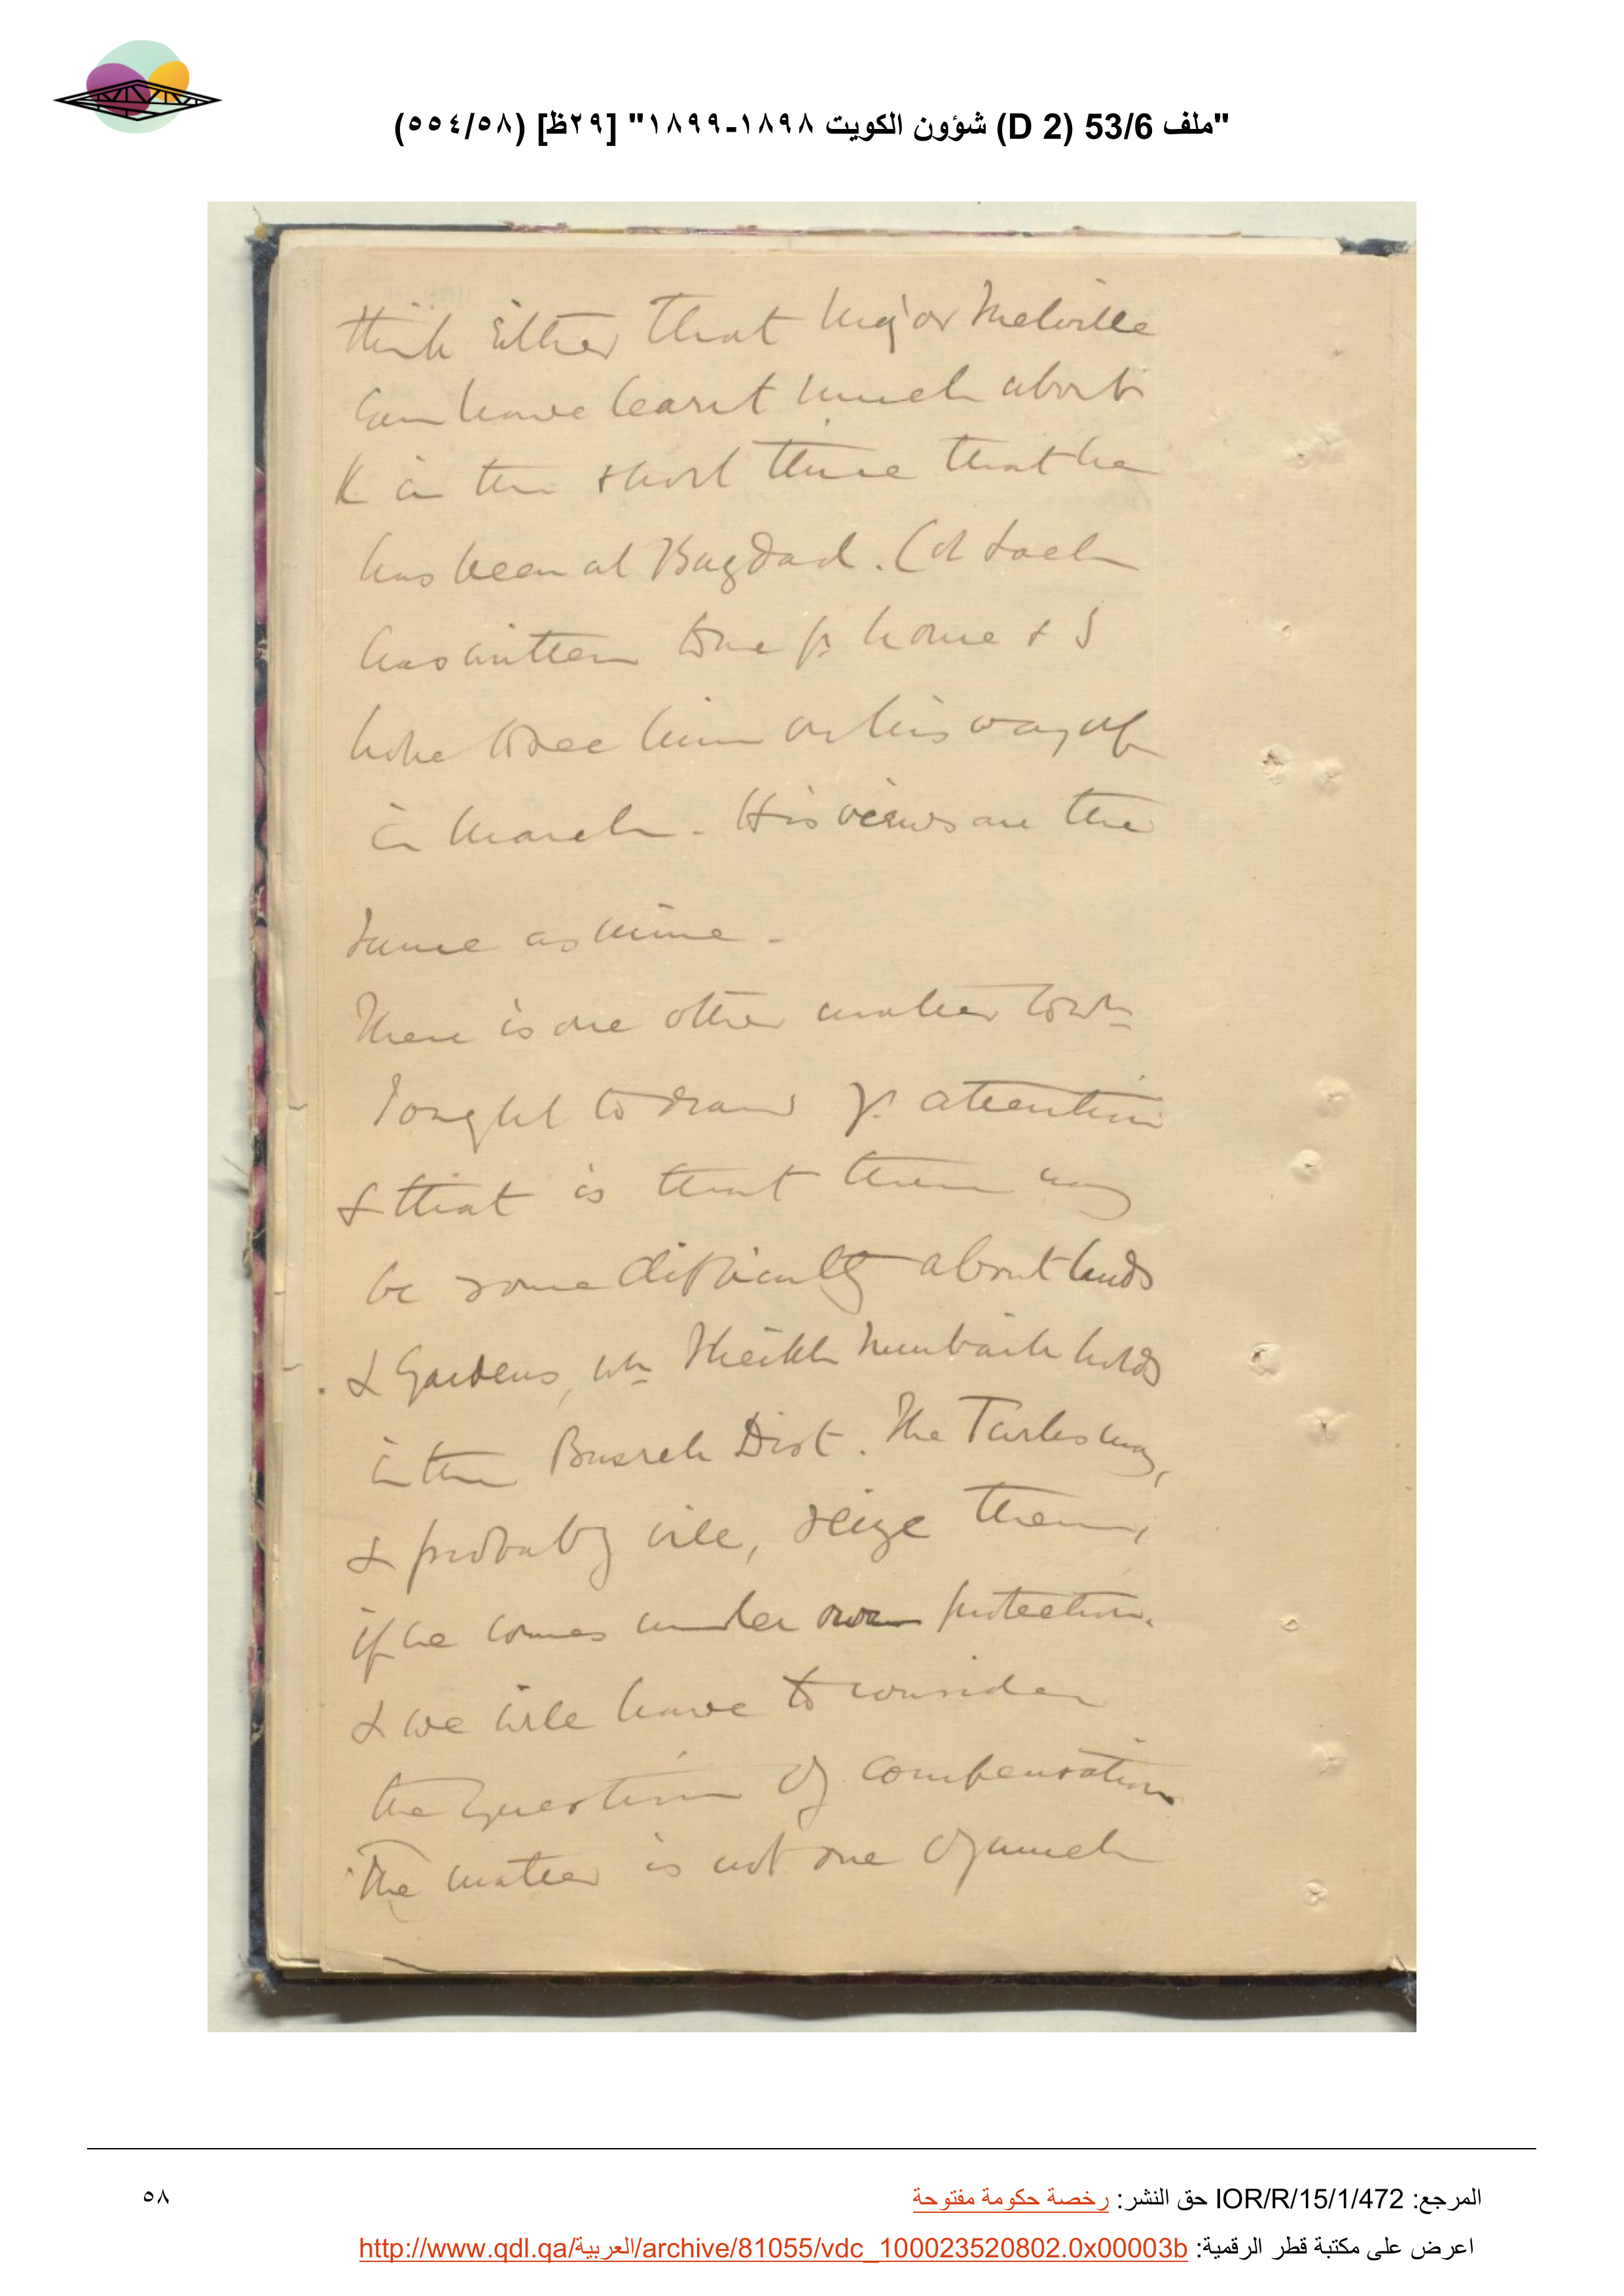 "ملف 53/6 (D 2) شؤون الكويت ١٨٩٨-١٨٩٩" [٢٩ظ] (٥٥٤/٥٨)
think either that Major Melville
can have learnt much about
K in the short time that he
has been at Bagdad. Col Loch
has written to me fr. home & I
hope to see him on his way up
in March - His views are the
same as mine -
There is one other matter to wh
I ought to draw yr. attention
& that is that there may
be some difficulty about lands
& Gardens, wh Sheikh Mumbarik holds
in the Busreh Dist. The Turks may,
& probably will, seize them,
if he comes under our protection.
& we will have to consider
the question of compensation
The matter is not one of much
المرجع: IOR/R/15/1/472 حق النشر: رخصة حكومة مفتوحة
٥٨
اعرض على مكتبة قطر الرقمية: http://www.qdl.qa/العربية/archive/81055/vdc_100023520802.0x00003b